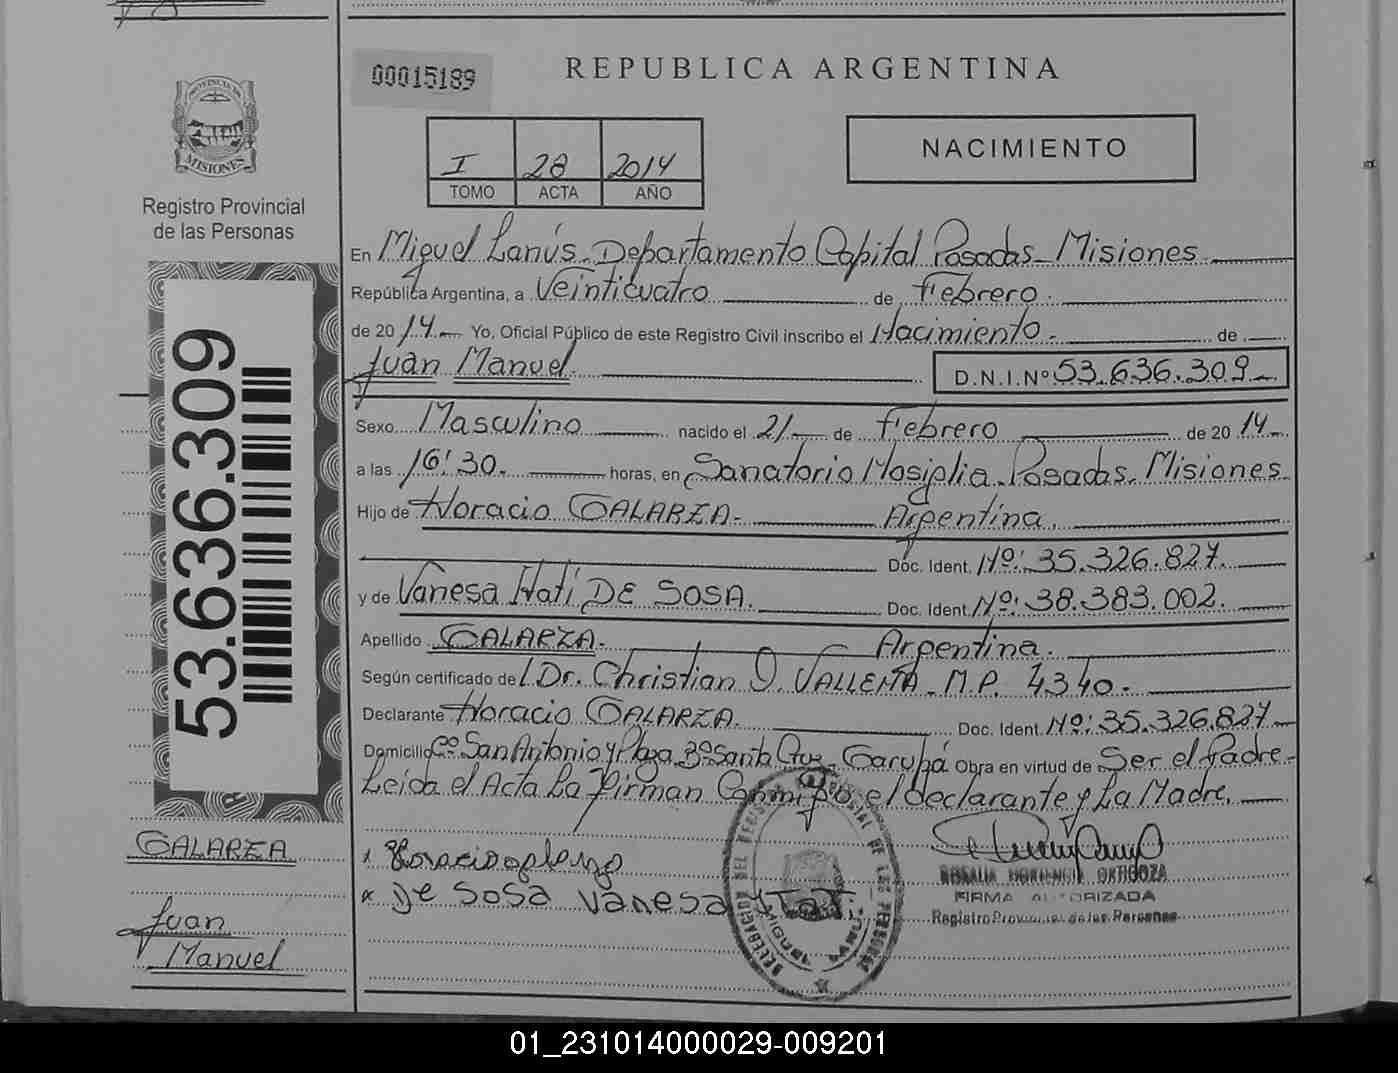 00015189
REPUBLICA ARGENTINA
PROVINCIA DE
MISIONES
Registro Provincial
de las Personas
I 28 2014
TOMO ACTA AÑO
NACIMIENTO
En Miguel Lanús. Departamento Capital Posadas - Misiones
República Argentina, a Veinticuatro de Febrero.
de 2014 Yo, Oficial Público de este Registro Civil inscribo el Nacimiento. de
Juan Manuel. D.N.I.Nº 53.636.309
53.636.309
Sexo Masculino nacido el 21 de Febrero de 2014
a las 16:30. horas, en Sanatorio Posadas. Misiones
Hijo de Horacio GALARZA. Argentina.
Doc. Ident. Nº: 35.326.827.
y de Vanesa Itatí DE SOSA. Doc. Ident. Nº: 38.383.002.
Apellido GALARZA. Argentina.
Según certificado de l Dr. Christian O. M.P. 4340.
Declarante Horacio GALARZA. Doc. Ident. Nº: 35.326.827
Domicilio Cº San Antonio y Plaza Bº Santa Cruz - Garupá Obra en virtud de Ser el Padre.-
Leída el Acta La Firman Conmigo el declarante y La Madre.
GALARZA
Juan
Manuel
x Horacio galarza
x De Sosa Vanesa Itatí
ROSALIA HORTENCIA ORTIGOZA
FIRMA AUTORIZADA
Registro Provincial de las Personas
DELEGACION DEL REGISTRO PROVINCIAL DE LAS PERSONAS
MIGUEL LANUS
01_231014000029-009201